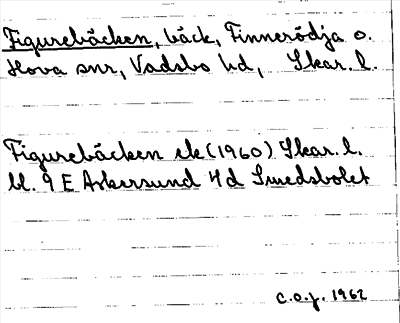 Figurebäcken, bäck, Finnerödja o.
Hova snr, Vadsbo hd, Skar. l.
Figurebäcken ek (1960) Skar. l.
bl. 9 E Askersund 4d Smedsbolet
C.O.J. 1962